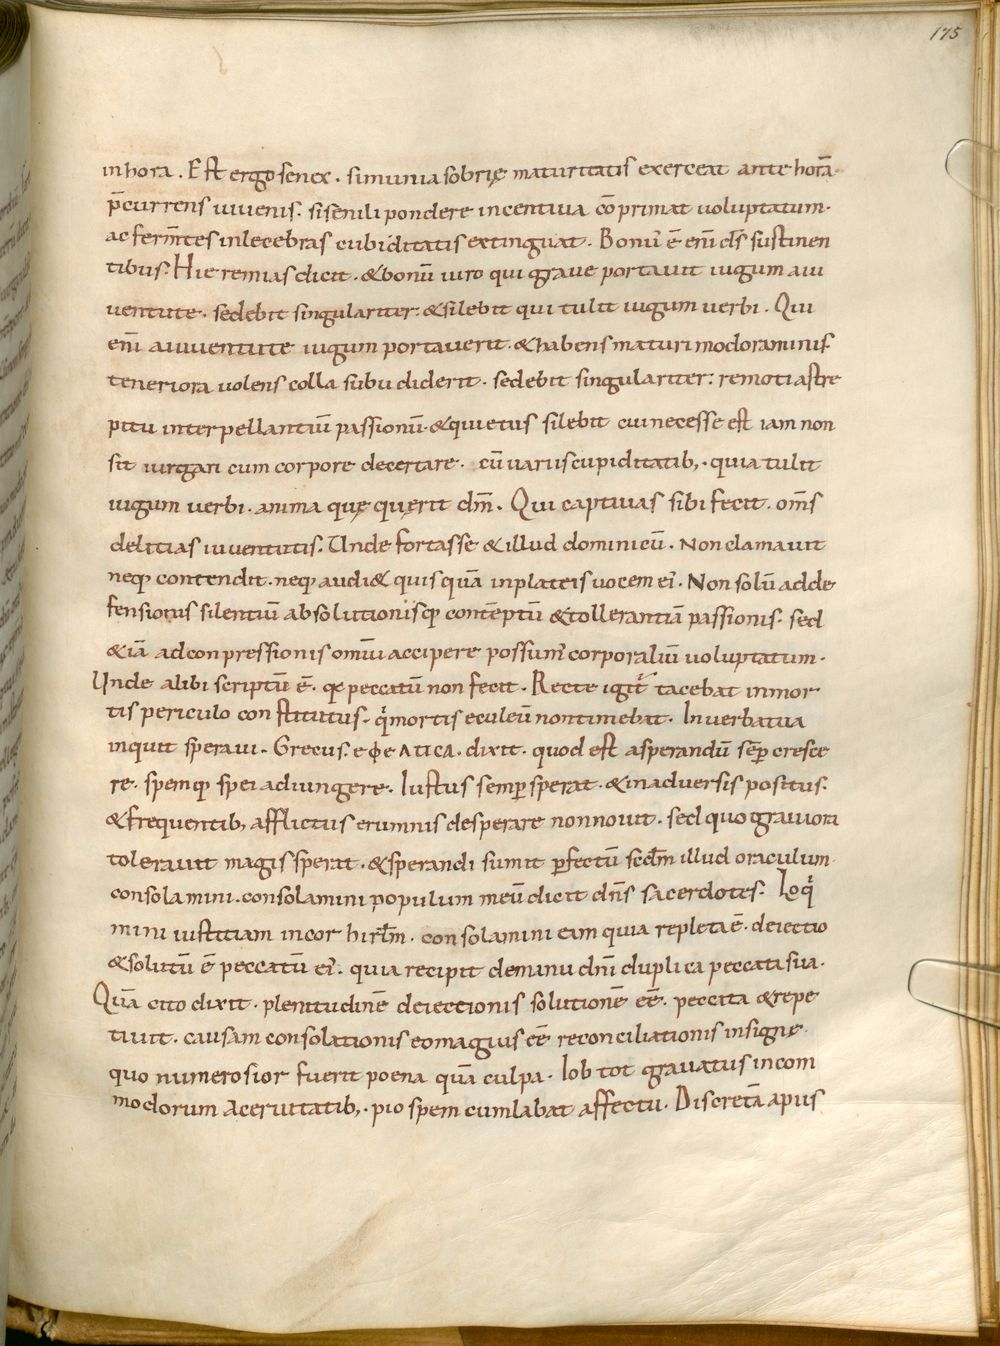 175
in hora. Est ergo senex. si munia sobrię maturitatis exerceat ante horā.
p̄currens iuuenis. si senili pondere incentiua cōprimat uoluptatum.
ac fer̄m̄tes inlecebras cubiditatis extinguat. Bonū ē enī dn̄s sustinen
tibus. Hieremias dicit. & bonū uiro qui graue portauit iugum a iu
uentute. sedebit singulariter. & silebit qui tulit iugum uerbi. Qui
enī a iuuentute iugum portauerit. & habens maturi modoraminis
teneriora uolens colla subdiderit. sedebit singulariter: remoti a stre
pitu interpellantiū passionū. & quietus silebit cui necesse est iam non
sit iurgari cum corpore decertare. cū uariis cupiditatib; . quia tulit
iugum uerbi. anima quę quęrit dm̄. Qui captiuas sibi fecit. om̄s
delitias iuuentutis. Unde fortasse & illud dominicū. Non clamauit
neq; contendit. neq; audi& quisquā in plateis uocem ei'. Non solū ad de
fensionis silentiū absolutionisq; contēptū & tollerantiā passionis. sed
& iā ad conpressionis omniū accipere possum' corporaliū uoluptatum.
Unde alibi scriptū ē. q̄ peccatū non fecit. Recte igit' tacebat in mor
tis periculo constitutus. q' mortis eculeū non timebat. In uerba tua
inquit speraui. Grecus. eφeΛTICA. dixit. quod est asperandū semp̄ cresce
re. spemq; spei adiungere. Iustus semp̄ sperat. & in aduersis positus.
& frequentib; afflictus erumnis desperare non nouit. sed quo grauiora
tolerauit magis sperat. & sperandi sumit p̄fectū scdm̄ illud oraculum.
consolamini. consolamini populum meū dicit dn̄s sacerdotes. Loq'
mini iustitiam in cor hirl̄m. consolamini eam quia repleta ē. deiectio
& solutū ē peccatū ei'. quia recipit de manu dn̄i duplica peccata sua.
Quā cito dixit. plenitudinē deiectionis solutionē eē. peccata & repe
tiuit. causam consolationis eo magius eē reconciliationis insignę.
quo numerosior fuerit poena quā culpa. Iob tot grauatus incom
modorum aceruitatib; . pio spem cumlabat affectu. Discretā apus